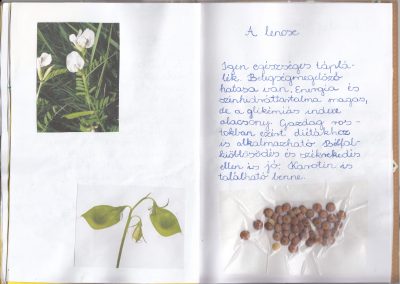 A lencse
Igen egészséges táplá-
lék. Betegségmegelőző
hatása van. Energia és
szénhidráttartalma magas,
de a glikémiás indexe
alacsony. Gazdag ros-
tokban ezért diétákhoz
is alkalmazható. Bélfal-
kiöltősödés és székrekedés
ellen is jó. Karotin is
található benne.